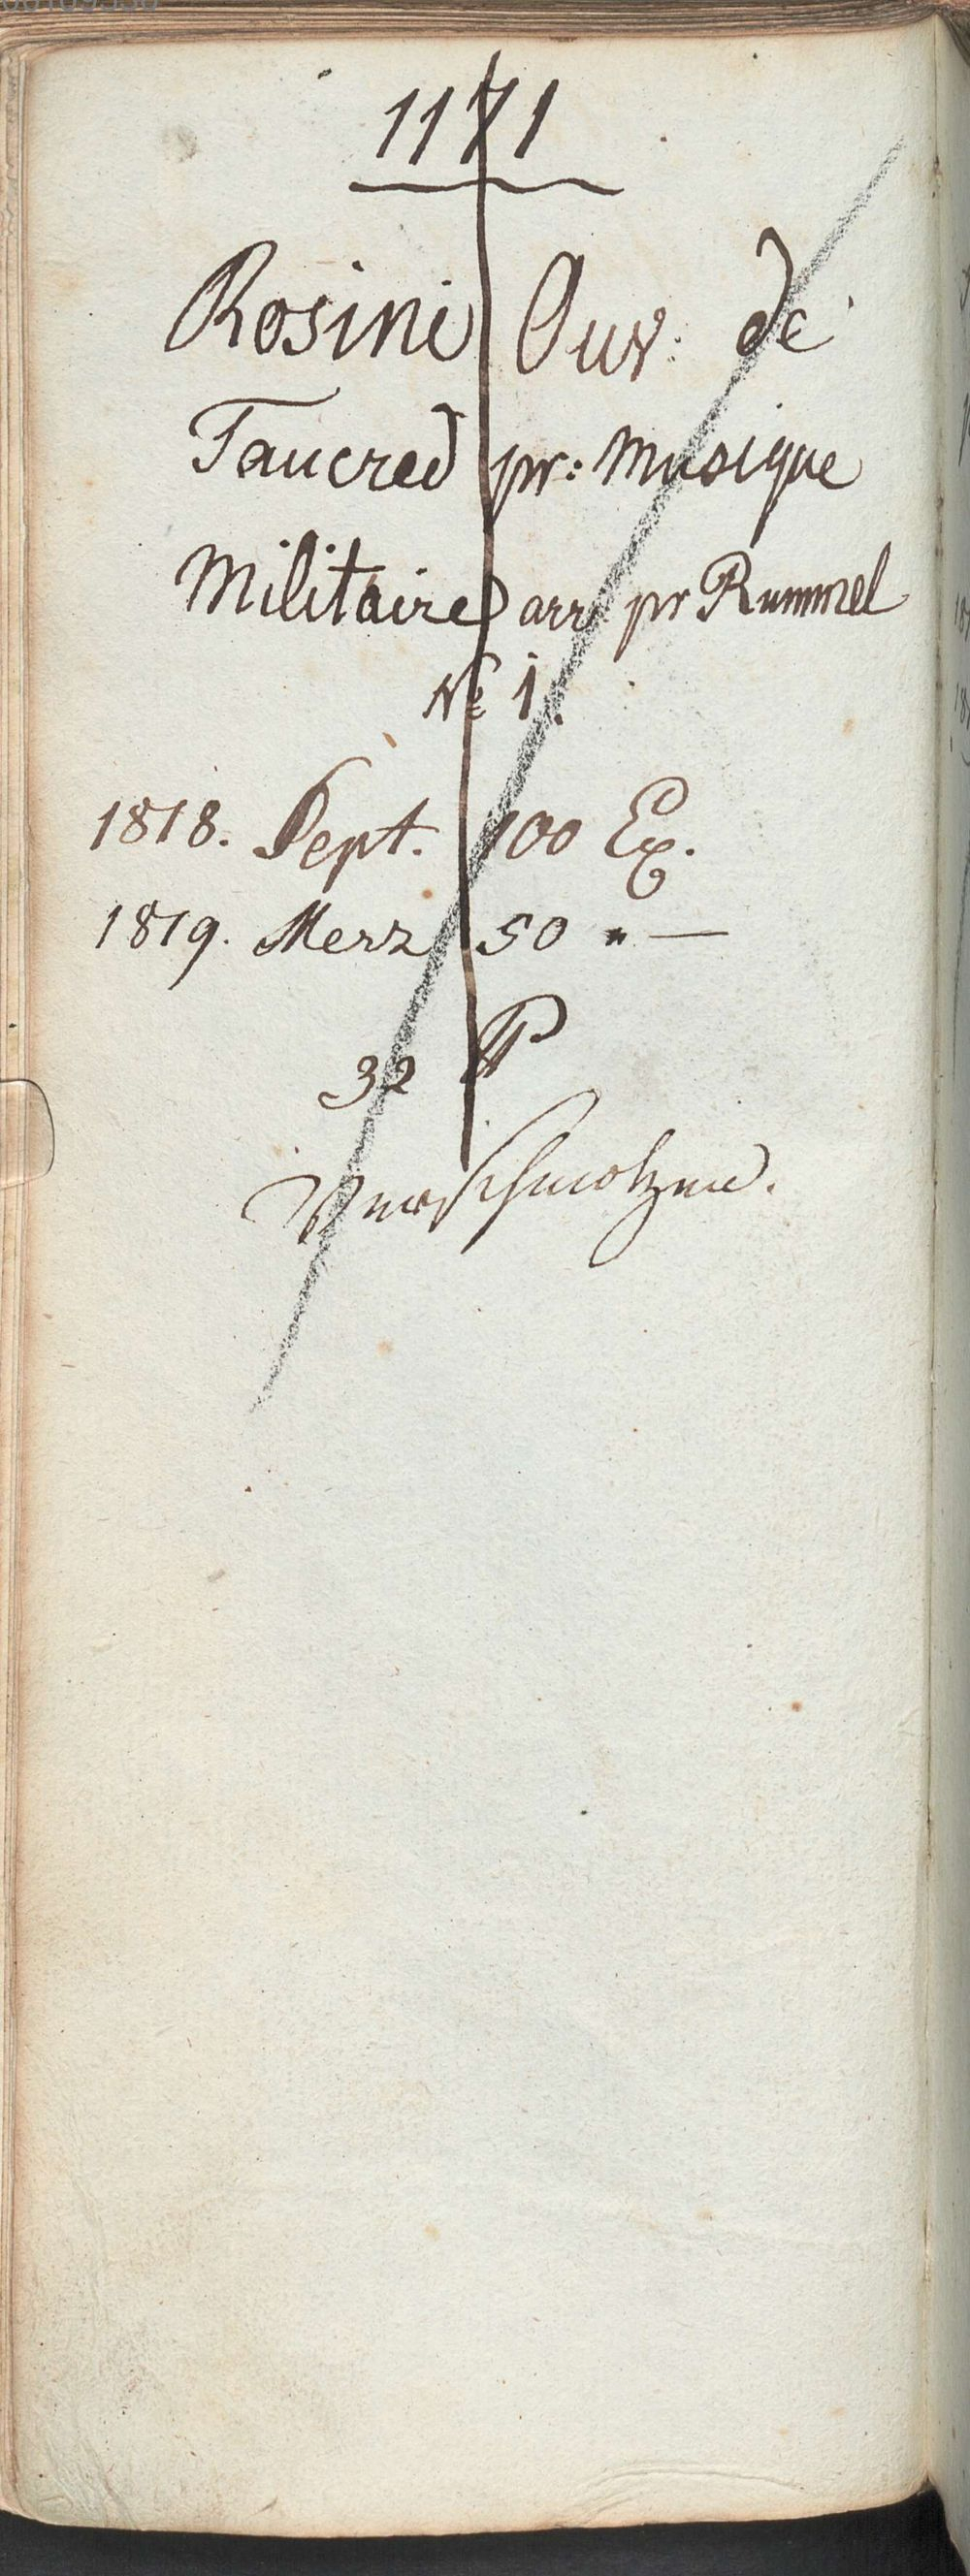 1171
Rosini Ouv: de
Taucred pr: Musique
Militaire arr pr Rummel
No 1.
1818. Sept. 100 Ex.
1819. Merz 50 " —
32 P
Verschmolzen.